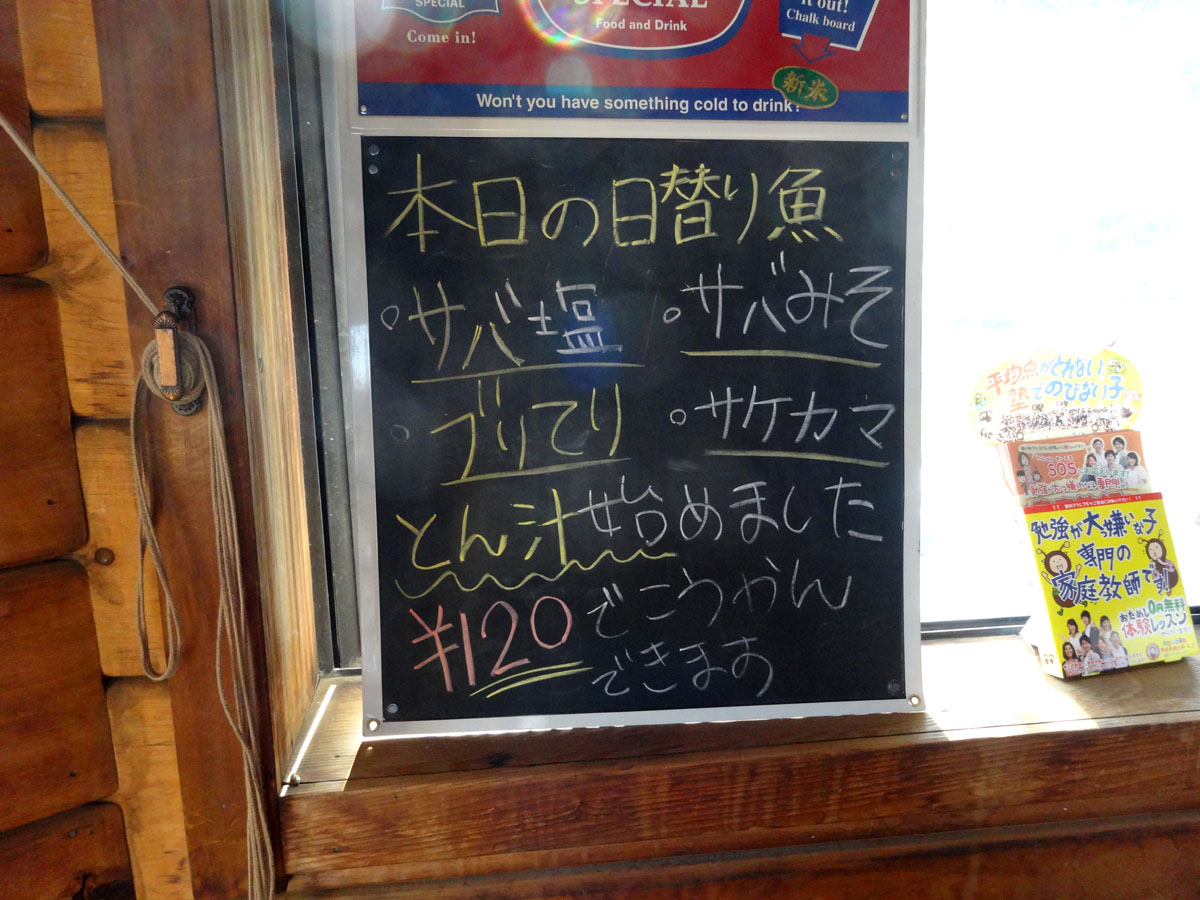 SPECIAL
Come in!
SPECIAL
Food and Drink
it out!
Chalk board
新米
Won't you have something cold to drink?
本日の日替り魚
○サバ塩 ○サバみそ
○ブリてり ○サケカマ
とん汁始めました
¥120でこうかん
できます
平均点がとれない、
塾でのびない子
SOS
勉強が大っ嫌いな子
専門の
家庭教師です!
おためし0円無料
体験レッスン